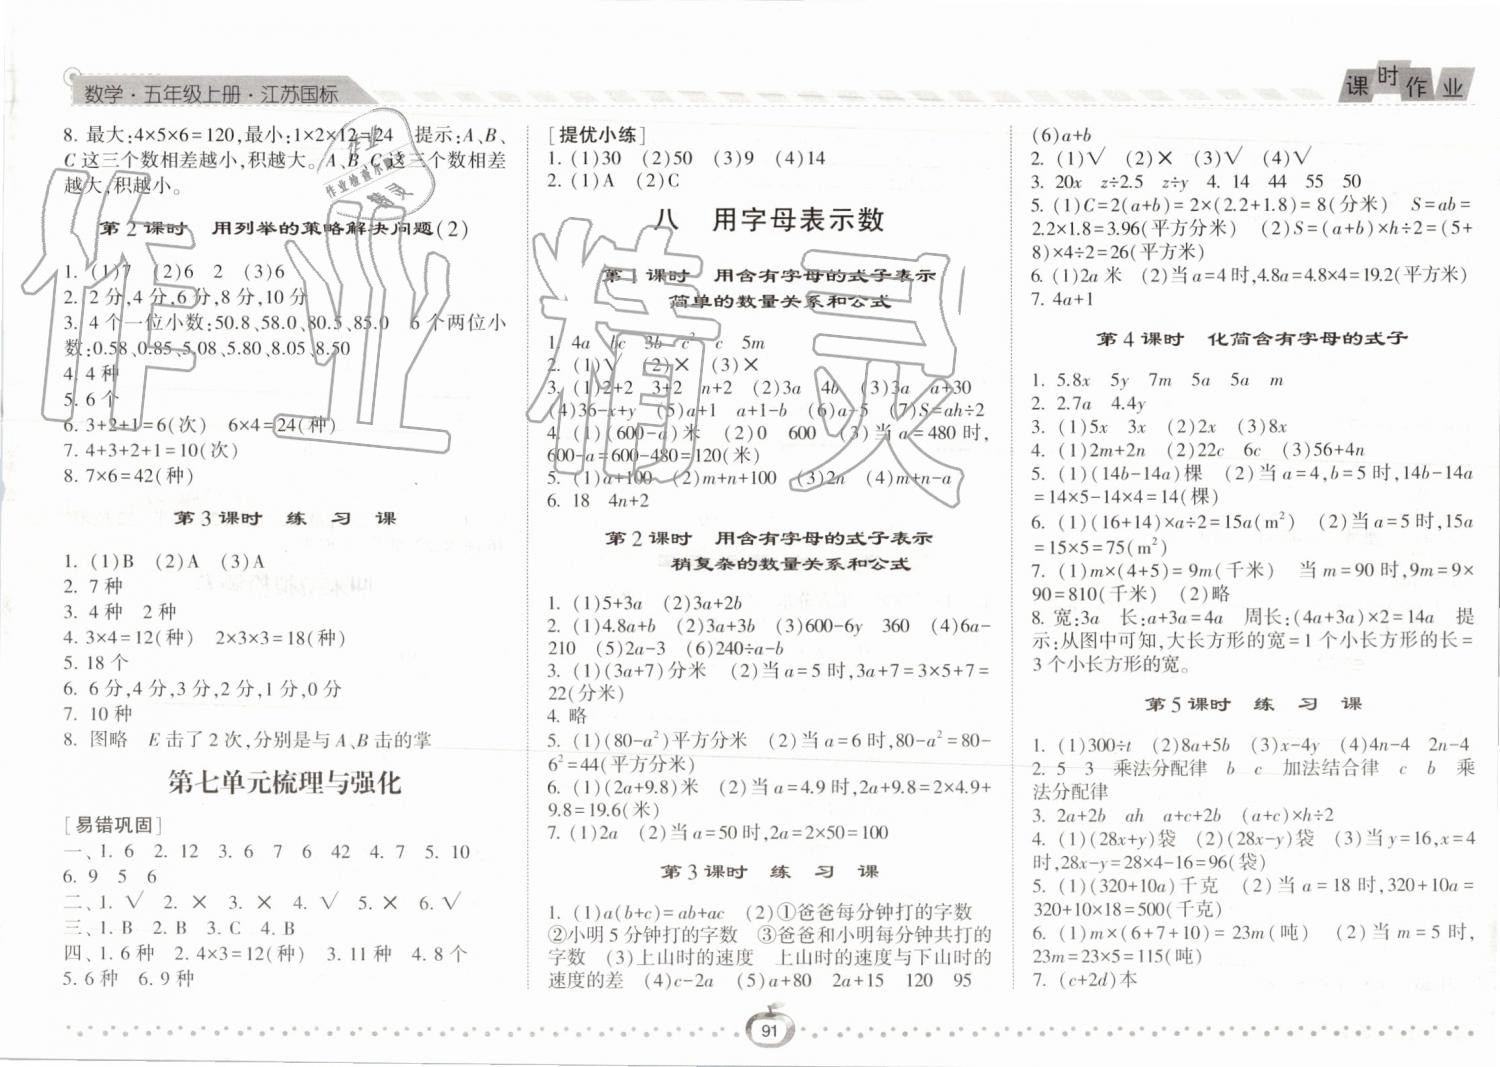 数学·五年级上册·江苏国标
课时作业
8. 最大:4×5×6=120,最小:1×2×12=24 提示:A、B、
C这三个数相差越小,积越大。A、B、C这三个数相差
越大,积越小。
第2课时 用列举的策略解决问题(2)
1. (1)7 (2)6 2 (3)6
2. 2分,4分,6分,8分,10分
3. 4个一位小数:50.8、58.0、80.5、85.0 6个两位小
数:0.58、0.85、5.08、5.80、8.05、8.50
4. 4种
5. 6个
6. 3+2+1=6(次) 6×4=24(种)
7. 4+3+2+1=10(次)
8. 7×6=42(种)
第3课时 练 习 课
1. (1)B (2)A (3)A
2. 7种
3. 4种 2种
4. 3×4=12(种) 2×3×3=18(种)
5. 18个
6. 6分,4分,3分,2分,1分,0分
7. 10种
8. 图略 E击了2次,分别是与A、B击的掌
第七单元梳理与强化
[易错巩固]
一、1. 6 2. 12 3. 6 7 6 42 4. 7 5. 10
6. 9 5 6
二、1. √ 2. × 3. × 4. √ 5. × 6. √
三、1. B 2. B 3. C 4. B
四、1. 6种 2. 4×3=12(种) 3. 11种 4. 8个
5. 6种 6. 9种
[提优小练]
1. (1)30 (2)50 (3)9 (4)14
2. (1)A (2)C
八 用字母表示数
第1课时 用含有字母的式子表示
简单的数量关系和公式
1. 4a bc 3b c² c 5m
2. (1)√ (2)× (3)×
3. (1)2+2 3+2 n+2 (2)3a 4b (3)3a a+30
(4)36-x+y (5)a+1 a+1-b (6)a-5 (7)S=ah÷2
4. (1)(600-a)米 (2)0 600 (3)当a=480时,
600-a=600-480=120(米)
5. (1)a+100 (2)m+n+100 (3)2n (4)m+n-a
6. 18 4n+2
第2课时 用含有字母的式子表示
稍复杂的数量关系和公式
1. (1)5+3a (2)3a+2b
2. (1)4.8a+b (2)3a+3b (3)600-6y 360 (4)6a-
210 (5)2a-3 (6)240÷a-b
3. (1)(3a+7)分米 (2)当a=5时,3a+7=3×5+7=
22(分米)
4. 略
5. (1)(80-a²)平方分米 (2)当a=6时,80-a²=80-
6²=44(平方分米)
6. (1)(2a+9.8)米 (2)当a=4.9时,2a+9.8=2×4.9+
9.8=19.6(米)
7. (1)2a (2)当a=50时,2a=2×50=100
第3课时 练 习 课
1. (1)a(b+c)=ab+ac (2)①爸爸每分钟打的字数
②小明5分钟打的字数 ③爸爸和小明每分钟共打的
字数 (3)上山时的速度 上山时的速度与下山时的
速度的差 (4)c-2a (5)a+80 2a+15 120 95
(6)a+b
2. (1)√ (2)× (3)√ (4)√
3. 20x z÷2.5 z÷y 4. 14 44 55 50
5. (1)C=2(a+b)=2×(2.2+1.8)=8(分米) S=ab=
2.2×1.8=3.96(平方分米) (2)S=(a+b)×h÷2=(5+
8)×4÷2=26(平方米)
6. (1)2a米 (2)当a=4时,4.8a=4.8×4=19.2(平方米)
7. 4a+1
第4课时 化简含有字母的式子
1. 5.8x 5y 7m 5a 5a m
2. 2.7a 4.4y
3. (1)5x 3x (2)2x (3)8x
4. (1)2m+2n (2)22c 6c (3)56+4n
5. (1)(14b-14a)棵 (2)当a=4,b=5时,14b-14a
=14×5-14×4=14(棵)
6. (1)(16+14)×a÷2=15a(m²) (2)当a=5时,15a
=15×5=75(m²)
7. (1)m×(4+5)=9m(千米) 当m=90时,9m=9×
90=810(千米) (2)略
8. 宽:3a 长:a+3a=4a 周长:(4a+3a)×2=14a 提
示:从图中可知,大长方形的宽=1个小长方形的长=
3个小长方形的宽。
第5课时 练 习 课
1. (1)300÷t (2)8a+5b (3)x-4y (4)4n-4 2n-4
2. 5 3 乘法分配律 b c 加法结合律 c b 乘
法分配律
3. 2a+2b ah a+c+2b (a+c)×h÷2
4. (1)(28x+y)袋 (2)(28x-y)袋 (3)当y=16,x=4
时,28x-y=28×4-16=96(袋)
5. (1)(320+10a)千克 (2)当a=18时,320+10a=
320+10×18=500(千克)
6. (1)m×(6+7+10)=23m(吨) (2)当m=5时,
23m=23×5=115(吨)
7. (c+2d)本
91
作业精灵